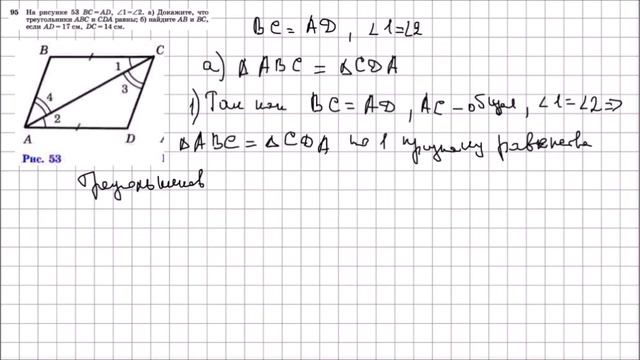 95 На рисунке 53 BC=AD, ∠1=∠2. а) Докажите, что
треугольники ABC и CDA равны; б) найдите AB и BC,
если AD=17 см, DC=14 см.
B
C
1
3
4
2
A
D
Рис. 53
BC = AD, ∠1=∠2
а) △ABC = △CDA
1) Так как BC = AD, AC – общая, ∠1=∠2 ⇒
△ABC = △CDA по 1 признаку равенства
треугольников